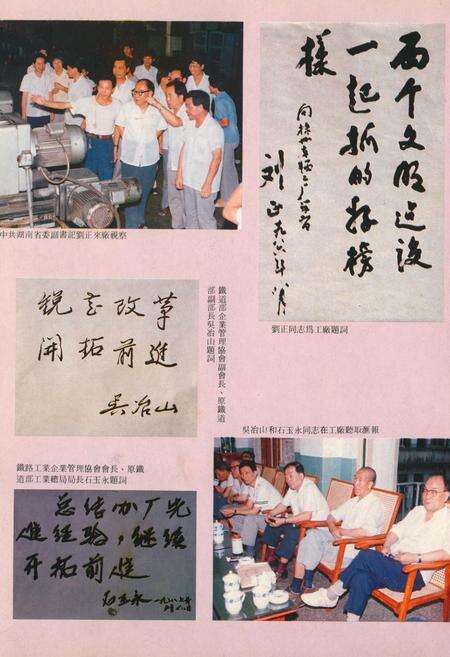 中共湖南省委副書記劉正來廠視察
两个文明建設
一起抓的好榜
樣
刘正
一九八六年八月
劉正同志爲工廠題詞
锐意改革
開拓前進
吴冶山
鐵道部企業管理協會副會長、原鐵道
部副部長吳冶山題詞
鐵路工業企業管理協會會長、原鐵
道部工業總局局長石玉永題詞
总结办厂先
進经验，继续
开拓前進
石玉永
吳冶山和石玉永同志在工廠聽取滙報